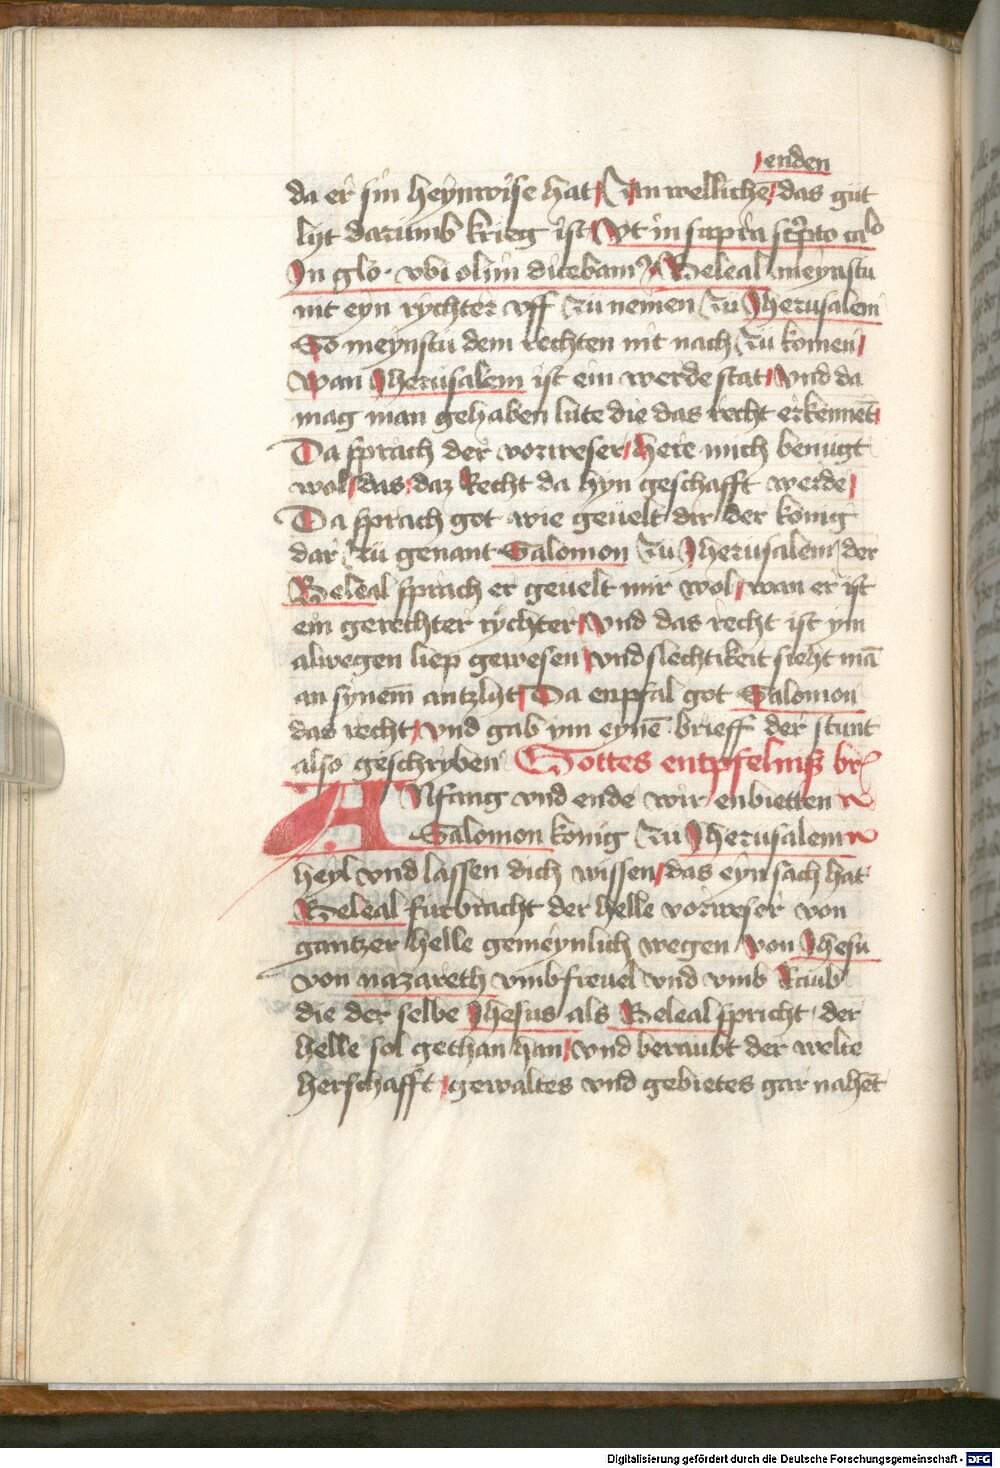 enden
da er sin heymwise hat / An wellichē / das gut
lyt darumb krieg ist / Vt in supra scͥpto ca͡lo
In glo · vbi olim dicebam ·/· Beleal meynstu
nit eyn rychter vff zu nemen zu Jherusalem
So meynstu dem rechten nit nach zu komen /
wan Jherusalem ist ein werde stat / Vnd da
mag man gehaben lute die das recht erkennēt /
Da sprach der vorweser / here mich benugt
wol / das / daz Recht da hyn geschafft werde /
Da sprach got wie geuelt dir der konig
dar zu genant Salomon zu Jherusalem / der
Beleal sprach er geuelt mir wol / wan er ist
ein gerechter rychter / Vnd das recht ist ym
alwegen liep gewesen / vnd slechtikeit sieht mā
an synem antzlyt / Da enpfal got Salomon
das recht / vnd gab ym eynē brieff der stunt
also geschryben Gottes entpfelniß br͛
ANfang vnd ende wir enbietten
Salomon konig zu Jherusalem
heyl vnd lassen dich wissen / das eyn sach hat
Beleal furbracht der helle vorweser von
gantzer helle gemeynlich wegen / von Jhesu
von nazareth vmb freuel vnd vmb Raub
die der selbe Jhesus als Beleal spricht der
helle sol gethan han / vnd beraubt der welte
herschafft / gewaltes vnd gebietes gar nahēt
Digitalisierung gefördert durch die Deutsche Forschungsgemeinschaft - DFG